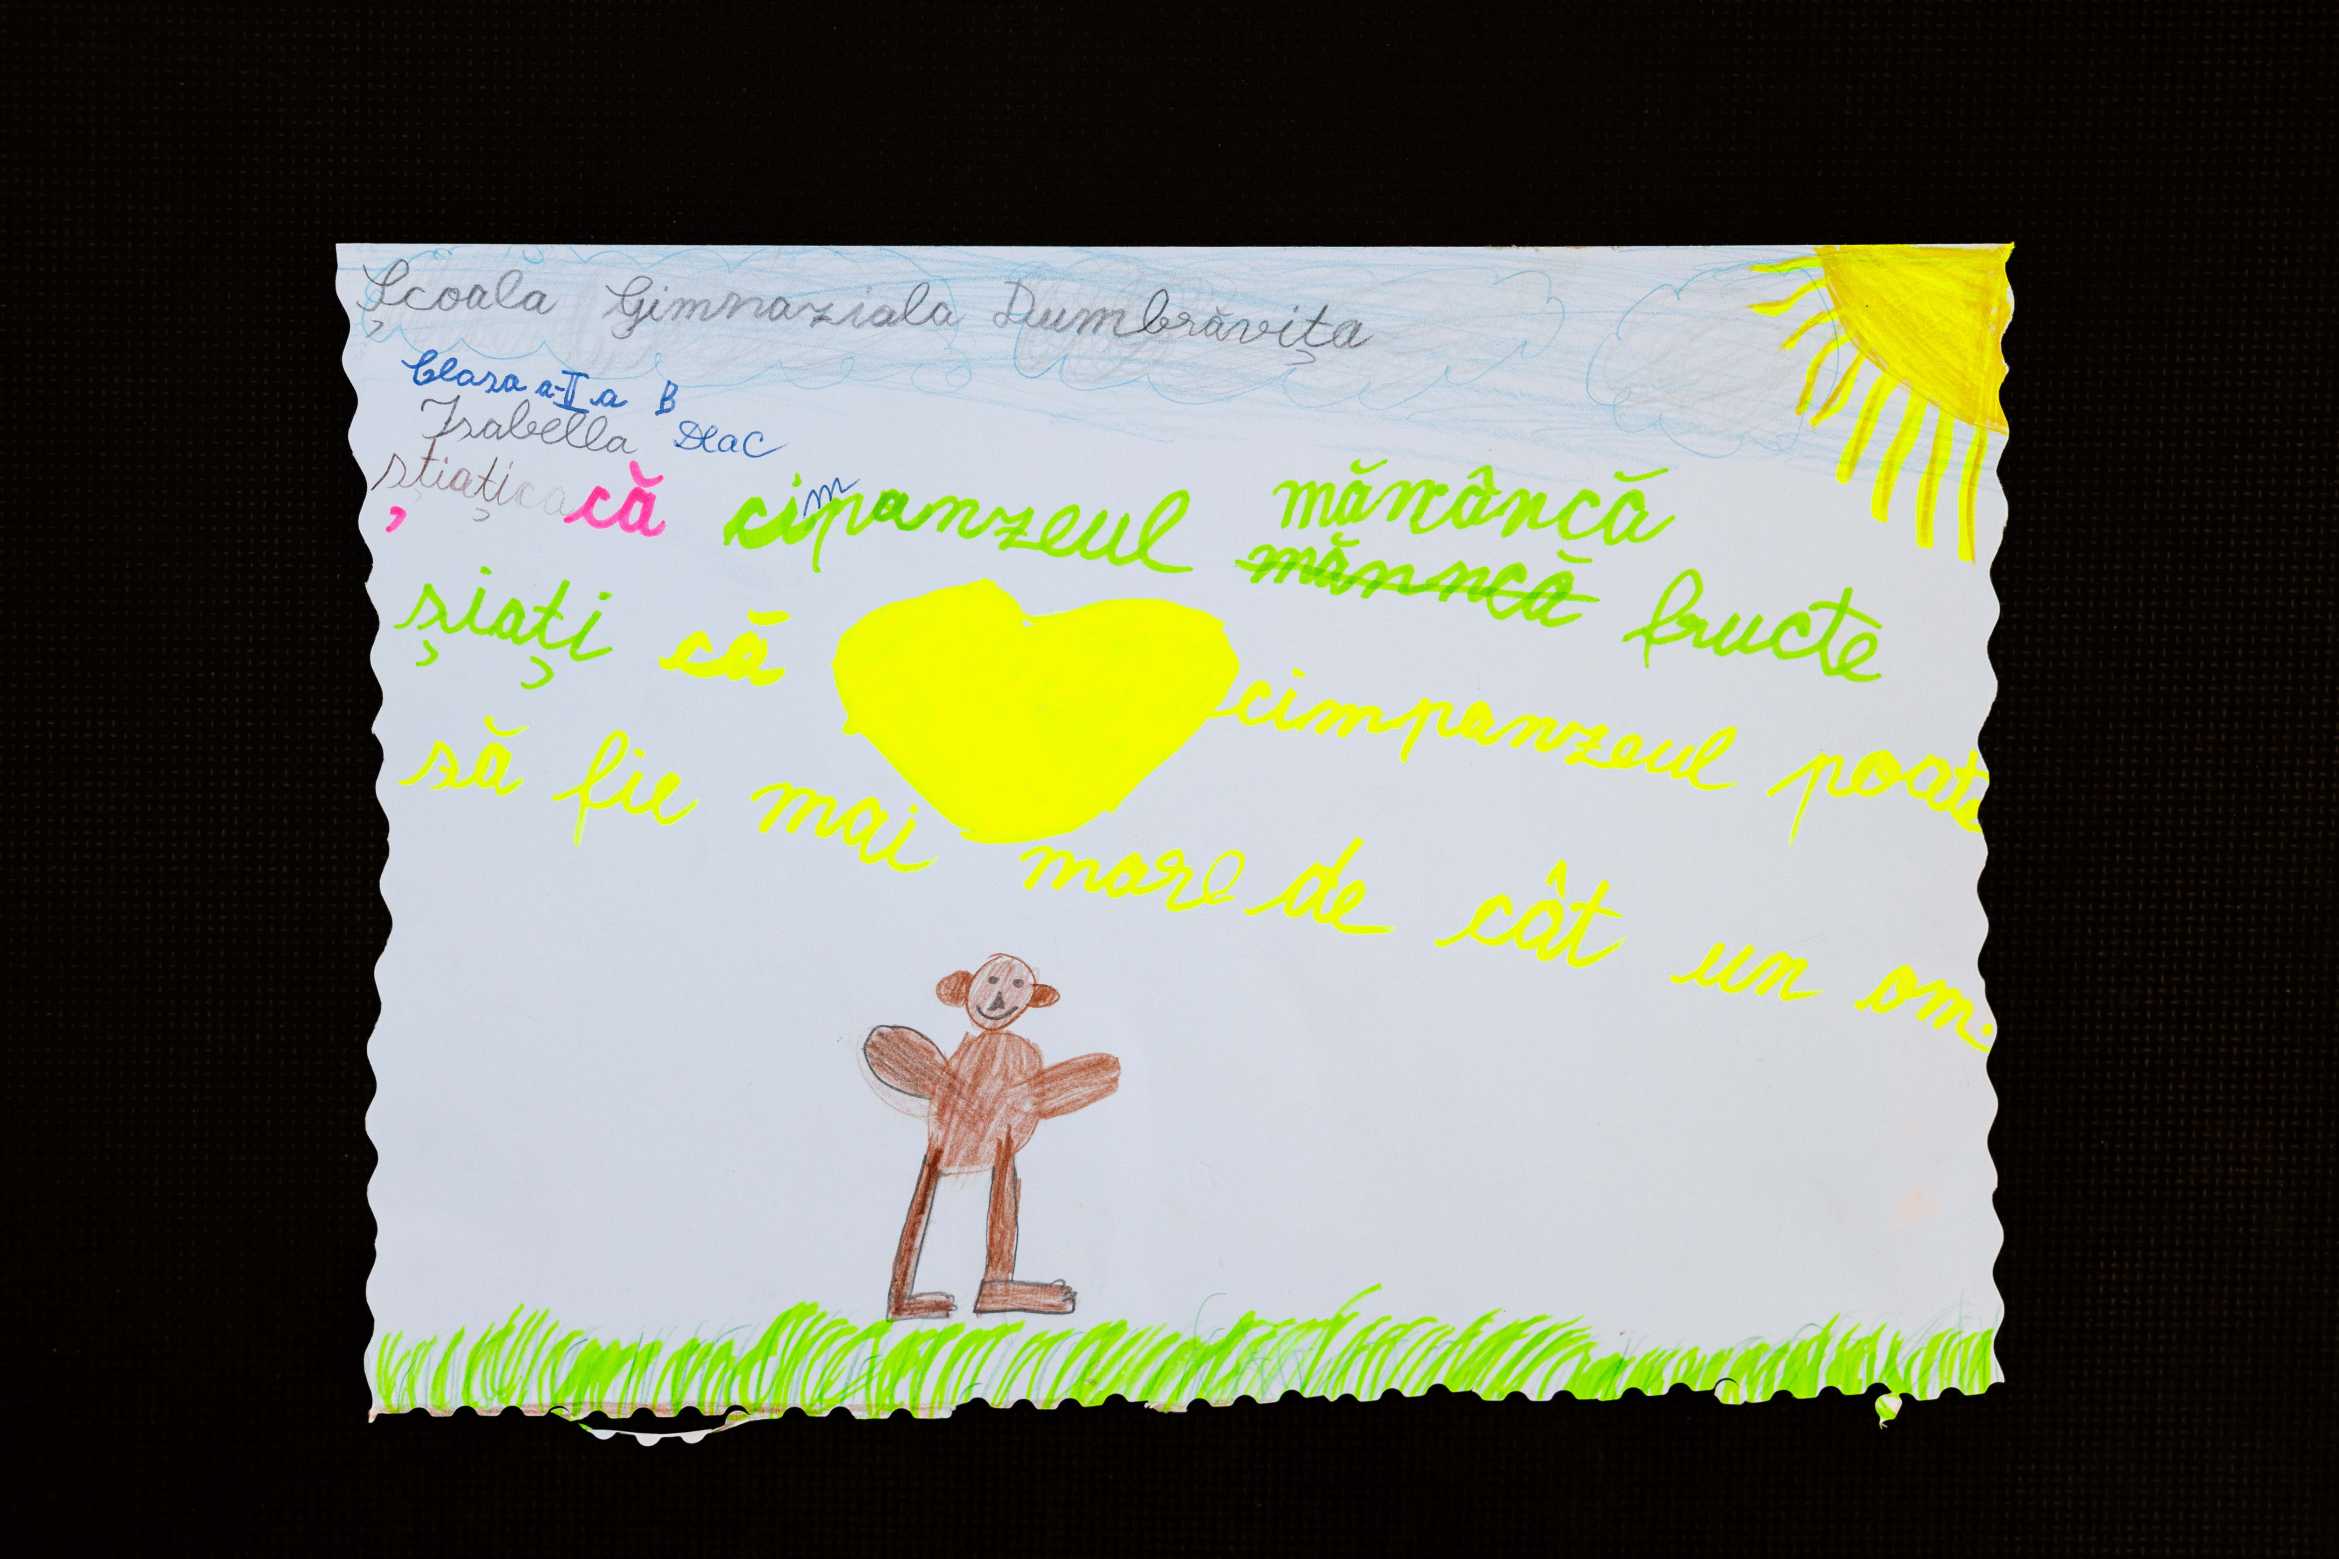 Școala Gimnaziala Dumbrăvița
Clasa a-II a B
Isabella
știați că cimpanzeul mănâncă fructe
șiați că cimpanzeul poate
să fie mai mare de cât un om.